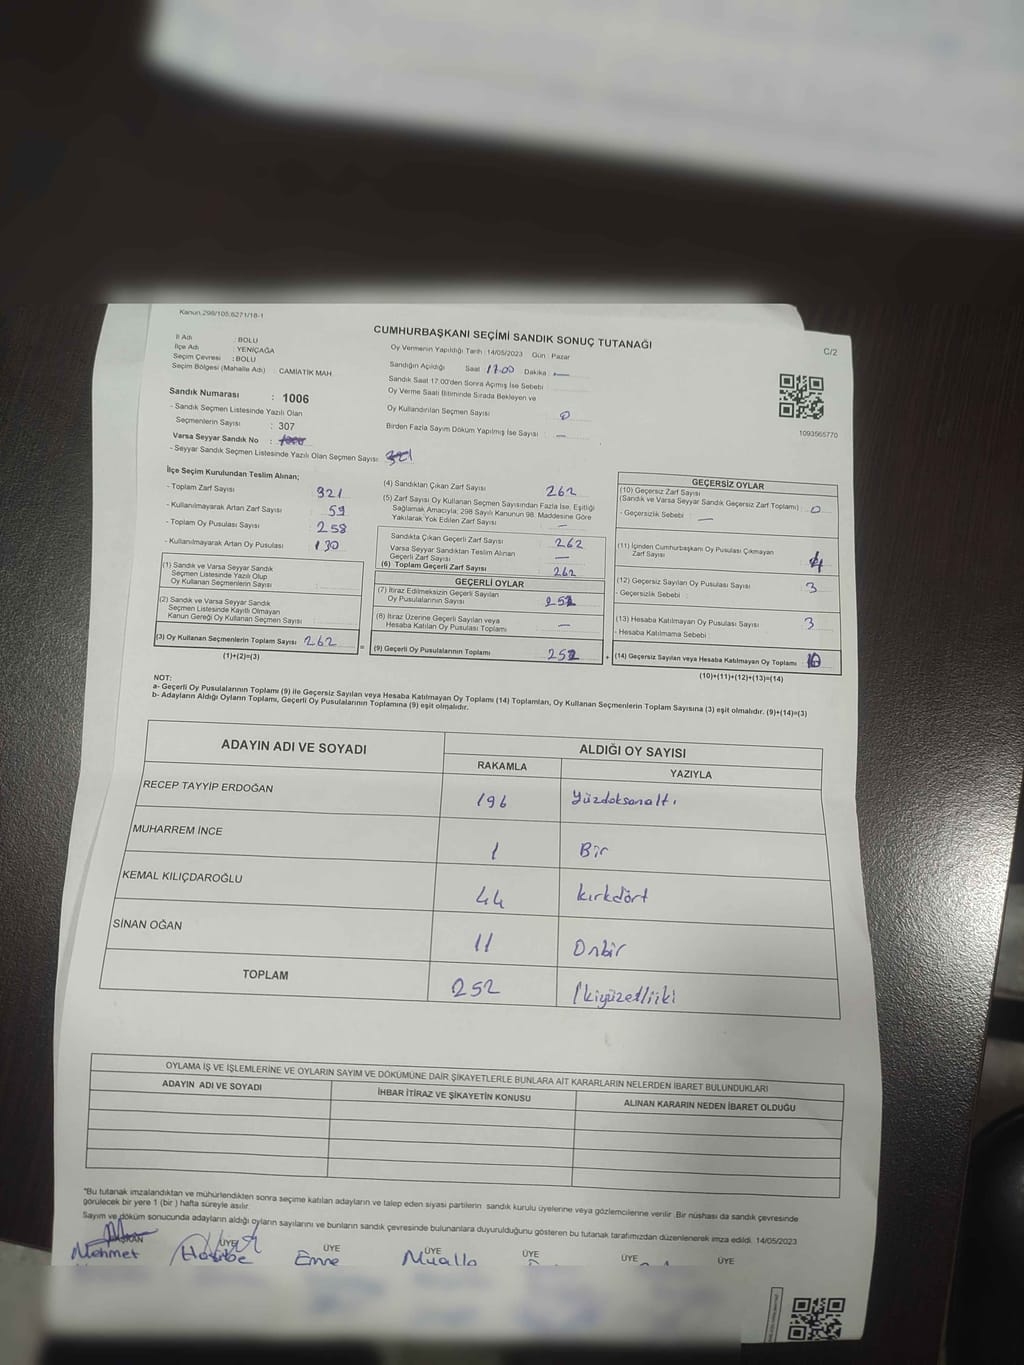 Kanun,298/105;6271/18-1
CUMHURBAŞKANI SEÇİMİ SANDIK SONUÇ TUTANAĞI
C/2
İl Adı : BOLU
İlçe Adı : YENİÇAĞA
Seçim Çevresi : BOLU
Seçim Bölgesi (Mahalle Adı) : CAMİATİK MAH.
Oy Vermenin Yapıldığı Tarih : 14/05/2023 Gün : Pazar
Sandığın Açıldığı Saat 17.00 Dakika : —
Sandık Saat 17:00'den Sonra Açılmış İse Sebebi :
Oy Verme Saati Bitiminde Sırada Bekleyen ve
Oy Kullandırılan Seçmen Sayısı : 0
Birden Fazla Sayım Döküm Yapılmış İse Sayısı : —
1093565770
Sandık Numarası : 1006
- Sandık Seçmen Listesinde Yazılı Olan
Seçmenlerin Sayısı : 307
Varsa Seyyar Sandık No :
- Seyyar Sandık Seçmen Listesinde Yazılı Olan Seçmen Sayısı:
İlçe Seçim Kurulundan Teslim Alınan;
- Toplam Zarf Sayısı : 321
- Kullanılmayarak Artan Zarf Sayısı : 59
- Toplam Oy Pusulası Sayısı : 258
- Kullanılmayarak Artan Oy Pusulası : 130
(1) Sandık ve Varsa Seyyar Sandık
Seçmen Listesinde Yazılı Olup
Oy Kullanan Seçmenlerin Sayısı :
(2) Sandık ve Varsa Seyyar Sandık
Seçmen Listesinde Kayıtlı Olmayan
Kanun Gereği Oy Kullanan Seçmen Sayısı :
(3) Oy Kullanan Seçmenlerin Toplam Sayısı : 262
(1)+(2)=(3)
=
(4) Sandıktan Çıkan Zarf Sayısı : 262
(5) Zarf Sayısı Oy Kullanan Seçmen Sayısından Fazla İse, Eşitliği
Sağlamak Amacıyla; 298 Sayılı Kanunun 98. Maddesine Göre
Yakılarak Yok Edilen Zarf Sayısı : —
Sandıkta Çıkan Geçerli Zarf Sayısı : 262
Varsa Seyyar Sandıktan Teslim Alınan
Geçerli Zarf Sayısı : —
(6) Toplam Geçerli Zarf Sayısı : 262
GEÇERLİ OYLAR
(7) İtiraz Edilmeksizin Geçerli Sayılan
Oy Pusulalarının Sayısı : 252
(8) İtiraz Üzerine Geçerli Sayılan veya
Hesaba Katılan Oy Pusulası Toplamı : —
(9) Geçerli Oy Pusulalarının Toplamı : 252
+
GEÇERSİZ OYLAR
(10) Geçersiz Zarf Sayısı
(Sandık ve Varsa Seyyar Sandık Geçersiz Zarf Toplamı) : 0
- Geçersizlik Sebebi : —
(11) İçinden Cumhurbaşkanı Oy Pusulası Çıkmayan
Zarf Sayısı : 4
(12) Geçersiz Sayılan Oy Pusulası Sayısı : 3
- Geçersizlik Sebebi :
(13) Hesaba Katılmayan Oy Pusulası Sayısı : 3
- Hesaba Katılmama Sebebi :
(14) Geçersiz Sayılan veya Hesaba Katılmayan Oy Toplamı : 10
(10)+(11)+(12)+(13)=(14)
NOT:
a- Geçerli Oy Pusulalarının Toplamı (9) ile Geçersiz Sayılan veya Hesaba Katılmayan Oy Toplamı (14) Toplamları, Oy Kullanan Seçmenlerin Toplam Sayısına (3) eşit olmalıdır. (9)+(14)=(3)
b- Adayların Aldığı Oyların Toplamı, Geçerli Oy Pusulalarının Toplamına (9) eşit olmalıdır.
ADAYIN ADI VE SOYADI
ALDIĞI OY SAYISI
RAKAMLA YAZIYLA
RECEP TAYYİP ERDOĞAN 196 Yüzdoksanaltı
MUHARREM İNCE 1 Bir
KEMAL KILIÇDAROĞLU 44 Kırkdört
SİNAN OĞAN 11 Onbir
TOPLAM 252 İkiyüzelliiki
OYLAMA İŞ VE İŞLEMLERİNE VE OYLARIN SAYIM VE DÖKÜMÜNE DAİR ŞİKAYETLERLE BUNLARA AİT KARARLARIN NELERDEN İBARET BULUNDUKLARI
ADAYIN ADI VE SOYADI İHBAR İTİRAZ VE ŞİKAYETİN KONUSU ALINAN KARARIN NEDEN İBARET OLDUĞU
*Bu tutanak imzalandıktan ve mühürlendikten sonra seçime katılan adayların ve talep eden siyasi partilerin sandık kurulu üyelerine veya gözlemcilerine verilir. Bir nüshası da sandık çevresinde
görülecek bir yere 1 (bir) hafta süreyle asılır.
Sayım ve döküm sonucunda adayların aldığı oyların sayılarını ve bunların sandık çevresinde bulunanlara duyurulduğunu gösteren bu tutanak tarafımızdan düzenlenerek imza edildi. 14/05/2023
BAŞKAN ÜYE ÜYE ÜYE ÜYE ÜYE ÜYE
Mehmet Hasibe Emne Mualla